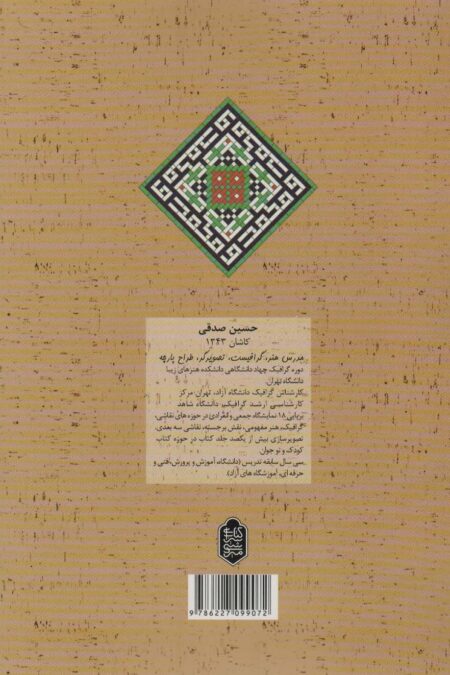 حسین صدقی
کاشان ۱۳۴۳
مدرس هنر، گرافیست، تصویرگر، طراح پارچه
دوره گرافیک جهاد دانشگاهی دانشکده هنرهای زیبا
دانشگاه تهران
کارشناس گرافیک دانشگاه آزاد، تهران مرکز
کارشناسی ارشد گرافیک، دانشگاه شاهد
برپایی ۱۸ نمایشگاه جمعی و انفرادی در حوزه های نقاشی،
گرافیک، هنر مفهومی، نقش برجسته، نقاشی سه بعدی،
تصویرسازی بیش از یکصد جلد کتاب در حوزه کتاب
کودک و نو جوان
سی سال سابقه تدریس (دانشگاه، آموزش و پرورش، فنی و
حرفه ای، آموزشگاه های آزاد).
9 786227 099072